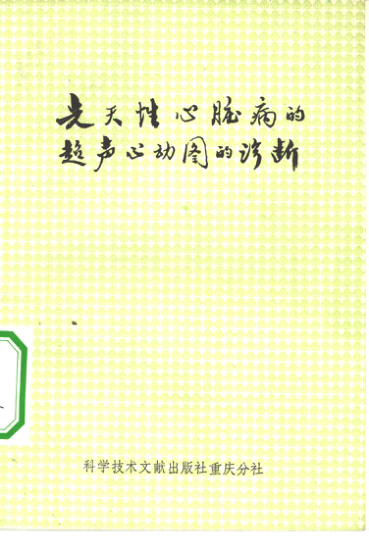 先天性心脏病的
超声心动图的诊断
科学技术文献出版社重庆分社